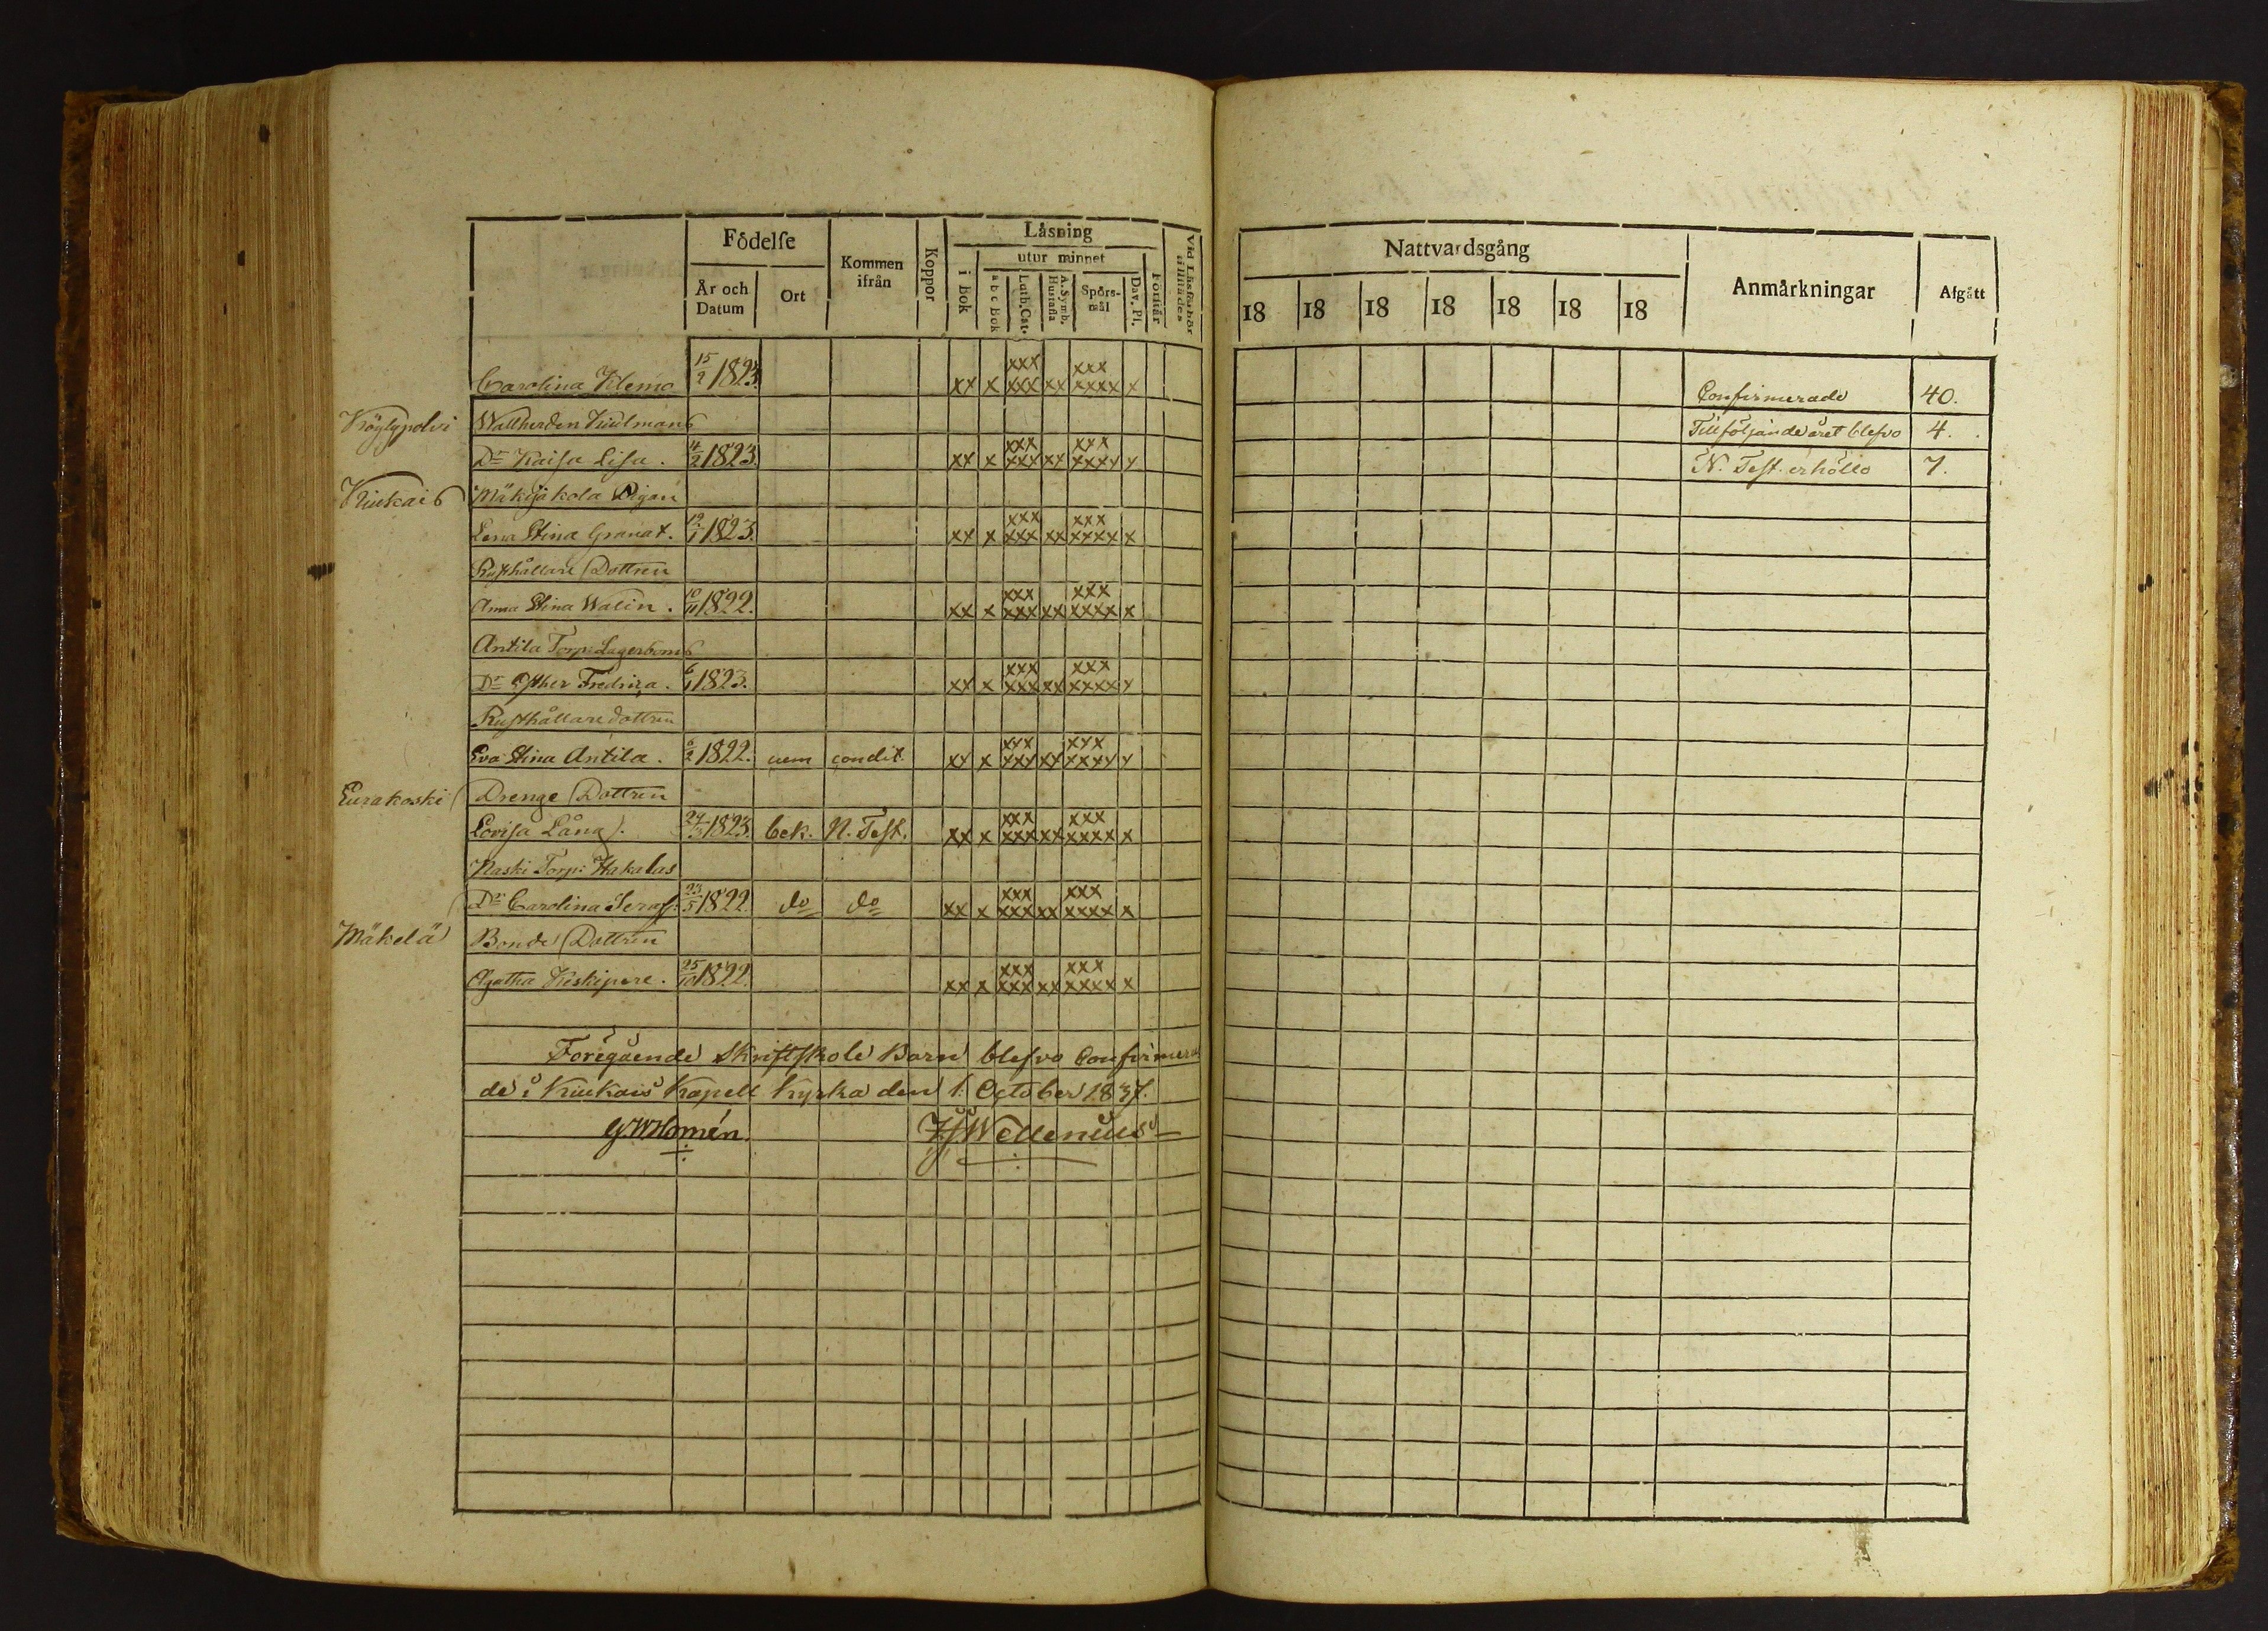 Födelse
Kommen ifrån
Koppor
Läsning
utur minnet
År och Datum
Ort
i Bok
a b c Bok
Luth. Cat.
A. Symb. Hustafla
Spörs-mål
Dav. Ps.
Förstår
Vid Läsförhör tillstädes
Nattvardsgång
Anmärkningar
Afgått
18 18 18 18 18 18 18
Carolina Klemo 15/2 1823. xx x xxx xxx xx xxx xxxx x
Confirmerade 40.
Köylypolvi Wallherden Kiulmans
Tillföljande året blefvo 4.
Dr Kaisa Lisa. 4/2 1823. xx x xxx xxx xx xxx xxxx x
N. Test. erhöllo 7.
Kiukais Mäkijäkola Pigan
Lena Stina Granat. 19/1 1823. xx x xxx xxx xx xxx xxxx x
Rusthållare Dottren
Anna Stina Walin. 10/11 1822. xx x xxx xxx xx xxx xxxx x
Antila Torp: Lagerboms
Dr Esther Fredrica. 6/1 1823. xx x xxx xxx xx xxx xxxx x
Rusthållare dottren
Eva Stina Antila. 6/2 1822. cum condit. xx x xxx xxx xx xxx xxxx x
Eurakoski Drenge Dottren
Lovisa Lång. 24/3 1823. bek. N. Test. xx x xxx xxx xx xxx xxxx x
Naski Torp: Hakalas
Dr Carolina Seraf: 23/5 1822. do do xx x xxx xxx xx xxx xxxx x
Mäkelä Bonde Dottren
Agatha Keskipere. 25/10 1822. xx x xxx xxx xx xxx xxxx x
Föregående Skriftskole Barn blefvo Confirmera
de i Kiukais Kapell Kyrka den 1. October 1837.
G. W. Homén. Wellenius